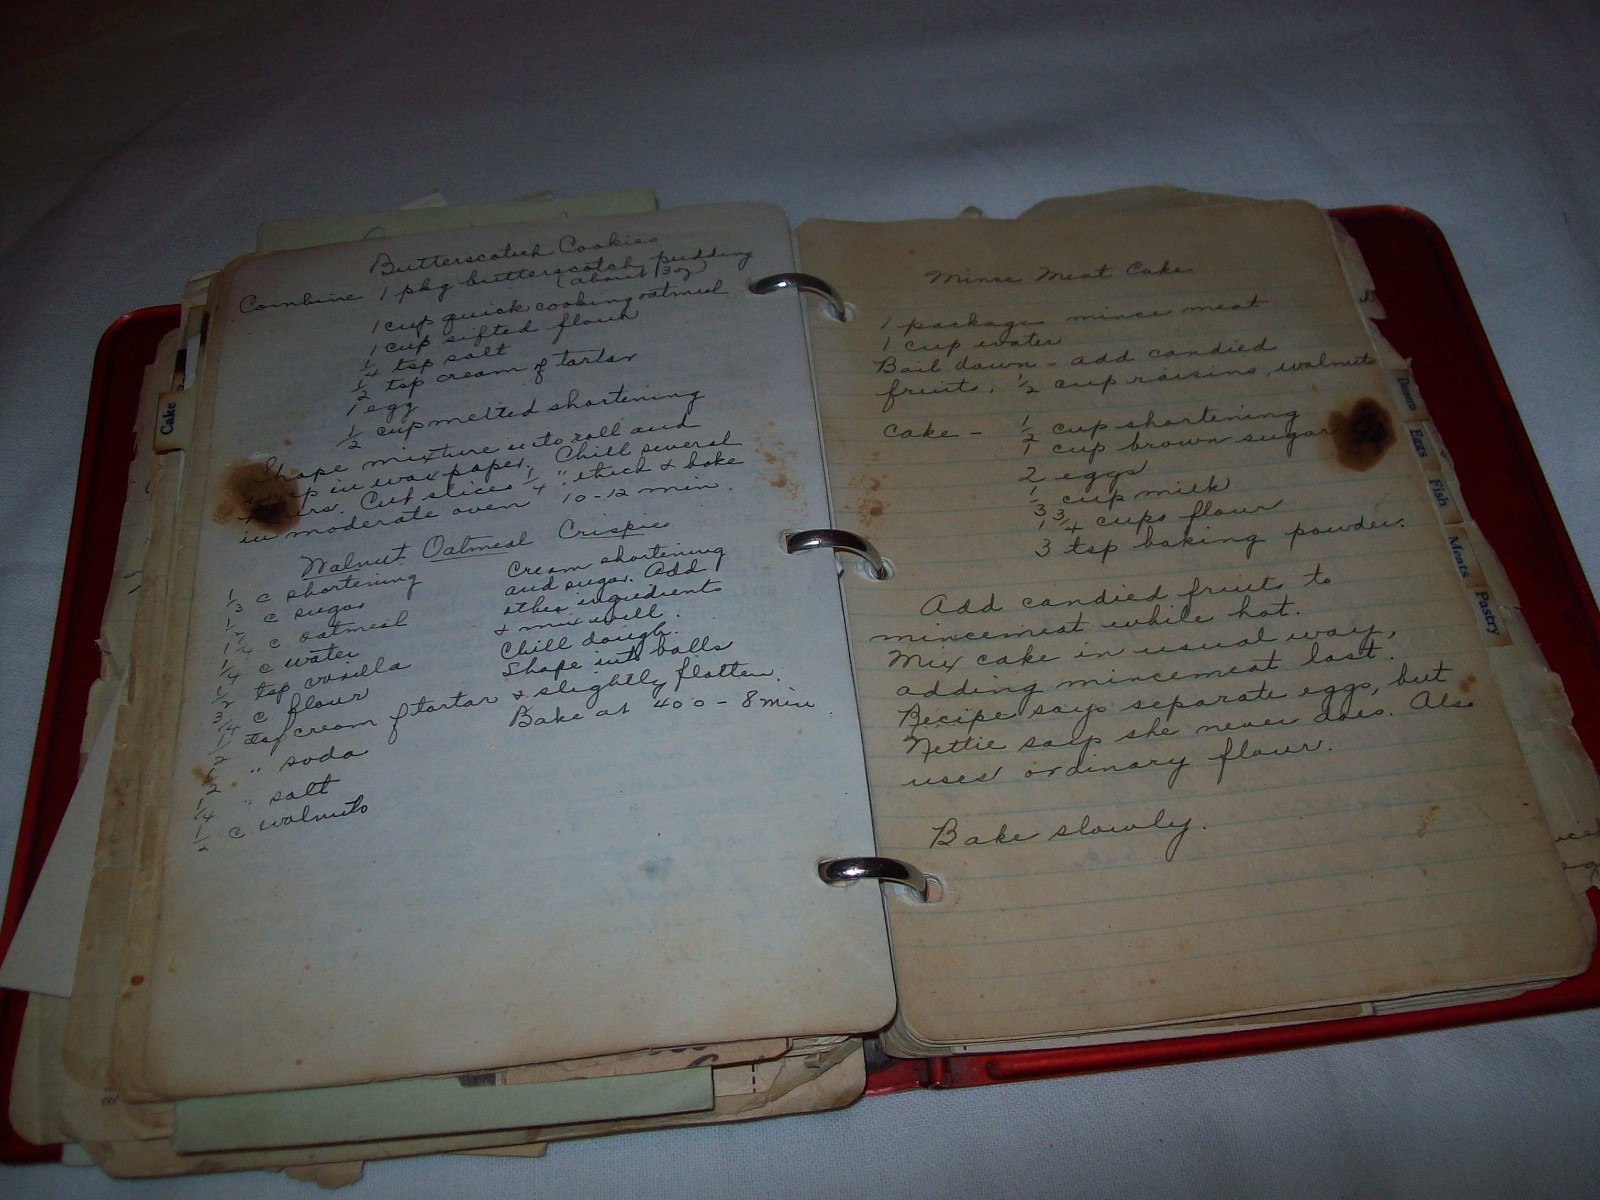 Butterscotch Cookies
Combine 1 pkg butterscotch pudding
(about 3 oz)
1 cup quick cooking oatmeal
1 cup sifted flour
1/4 tsp salt
1/2 tsp cream of tartar
1 egg
1/2 cup melted shortening
Shape mixture into roll and
wrap in wax paper. Chill several
hours. Cut slices 1/4 " thick & bake
in moderate oven 10-12 min.
Walnut Oatmeal Crispies
1/3 c shortening
1/2 c sugar
c oatmeal
1/4 c water
1/2 tsp vanilla
3/4 c flour
1/2 tsp cream of tartar
1/2 " soda
1/4 " salt
1/2 c walnuts
Cream shortening
and sugar. Add
other ingredients
& mix well.
Chill dough.
Shape into balls
& slightly flatten.
Bake at 400 - 8 min.
Cake
Mince Meat Cake
1 package mince meat
1 cup water
Boil down - add candied
fruits, 1/2 cup raisins, walnuts
Cake - 1/2 cup shortening
1 cup brown sugar
2 eggs
1/3 cup milk
1 3/4 cups flour
3 tsp baking powder.
Add candied fruits to
mincemeat while hot.
Mix cake in usual way,
adding mincemeat last.
Recipe says separate eggs, but
Nettie says she never does. Also
uses ordinary flour.
Bake slowly.
Eggs
Fish
Meats
Pastry